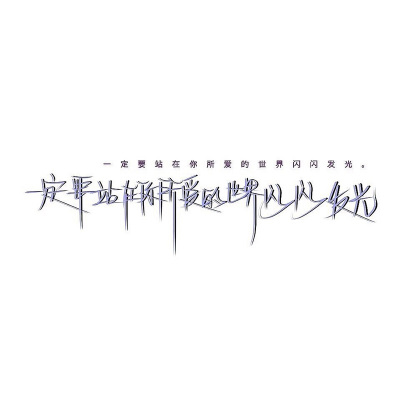 一定要站在你所爱的世界闪闪发光。
一定要站在你所爱的世界闪闪发光